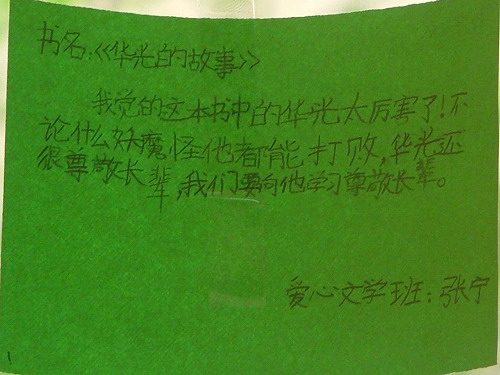 书名:《华光的故事》
我觉的这本书中的华光太厉害了!不
论什么妖魔怪他都能打败,华光还
很尊敬长辈,我们要向他学习尊敬长辈。
爱心文学班:张宁